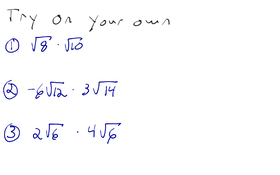 Try on your own
① √8 · √10
② -6√12 · 3√14
③ 2√6 · 4√6